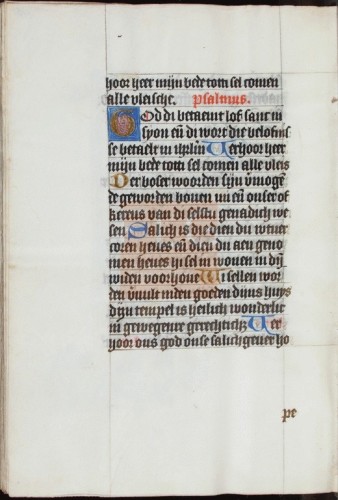 hoor heer mijn bede tottu sel comen
alle vleische. psalmus.
God di betaemt lof sanc in
syon eñ di wort die belofnis
se betaelt in ihrlm Verhoor heer
mijn bede tottu sel comen alle vleis
Der boser woorden sijn vmoge
de geworden boven mi eñ onser of
kereus van di selstu genadich we
sen Salich is die dien du wtuer
coren heues eñ dien du aen geno
men heues hi sel in wonen in dij
widen voorhoue Wi sellen wor
den vuult inden goeden dijns huys
dijn tempel is heilich wonderlic
in gewegenre gerechticheit Ver
hoor ons god onse salichgeuer ho
pe